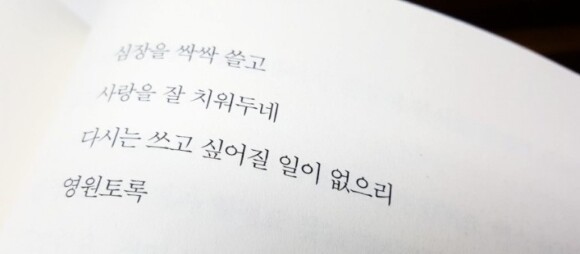 심장을 싹싹 쓸고
사랑을 잘 치워두네
다시는 쓰고 싶어질 일이 없으리
영원토록